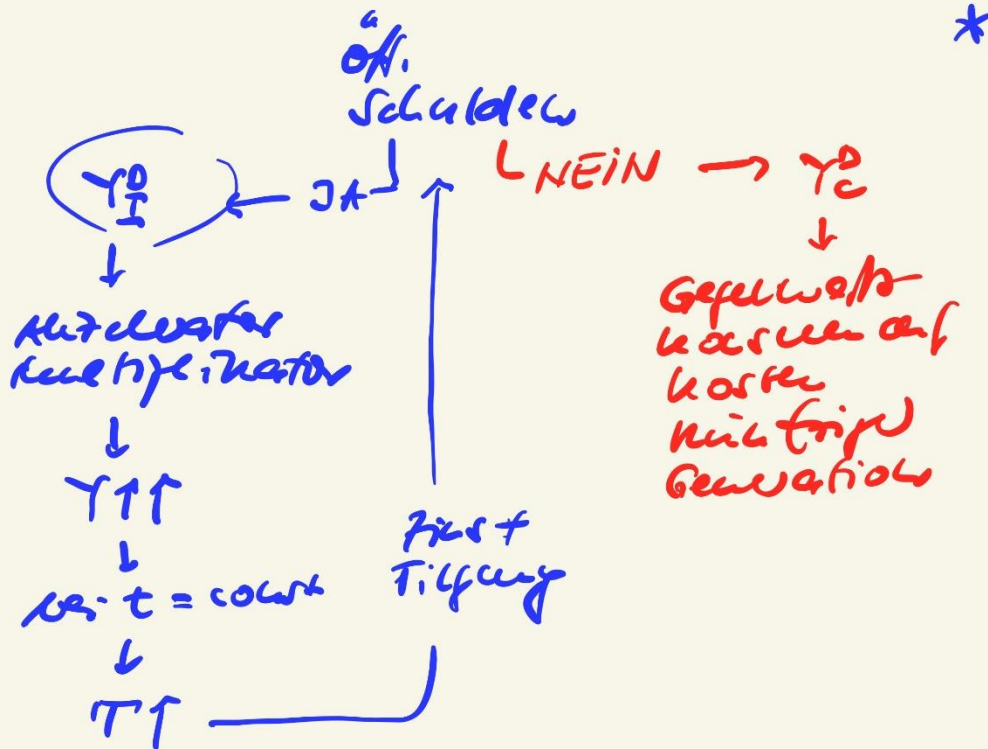 *
öff.
Schulden
Y^D_I ← JA
NEIN → Y^D_C
↓
↓
Gegenwarts
konsum auf
Kosten
künftiger
Generationen
Akzelerator
Multiplikator
↓
Y↑↑
↓
bei t = const
↓
T↑
Zins +
Tilgung